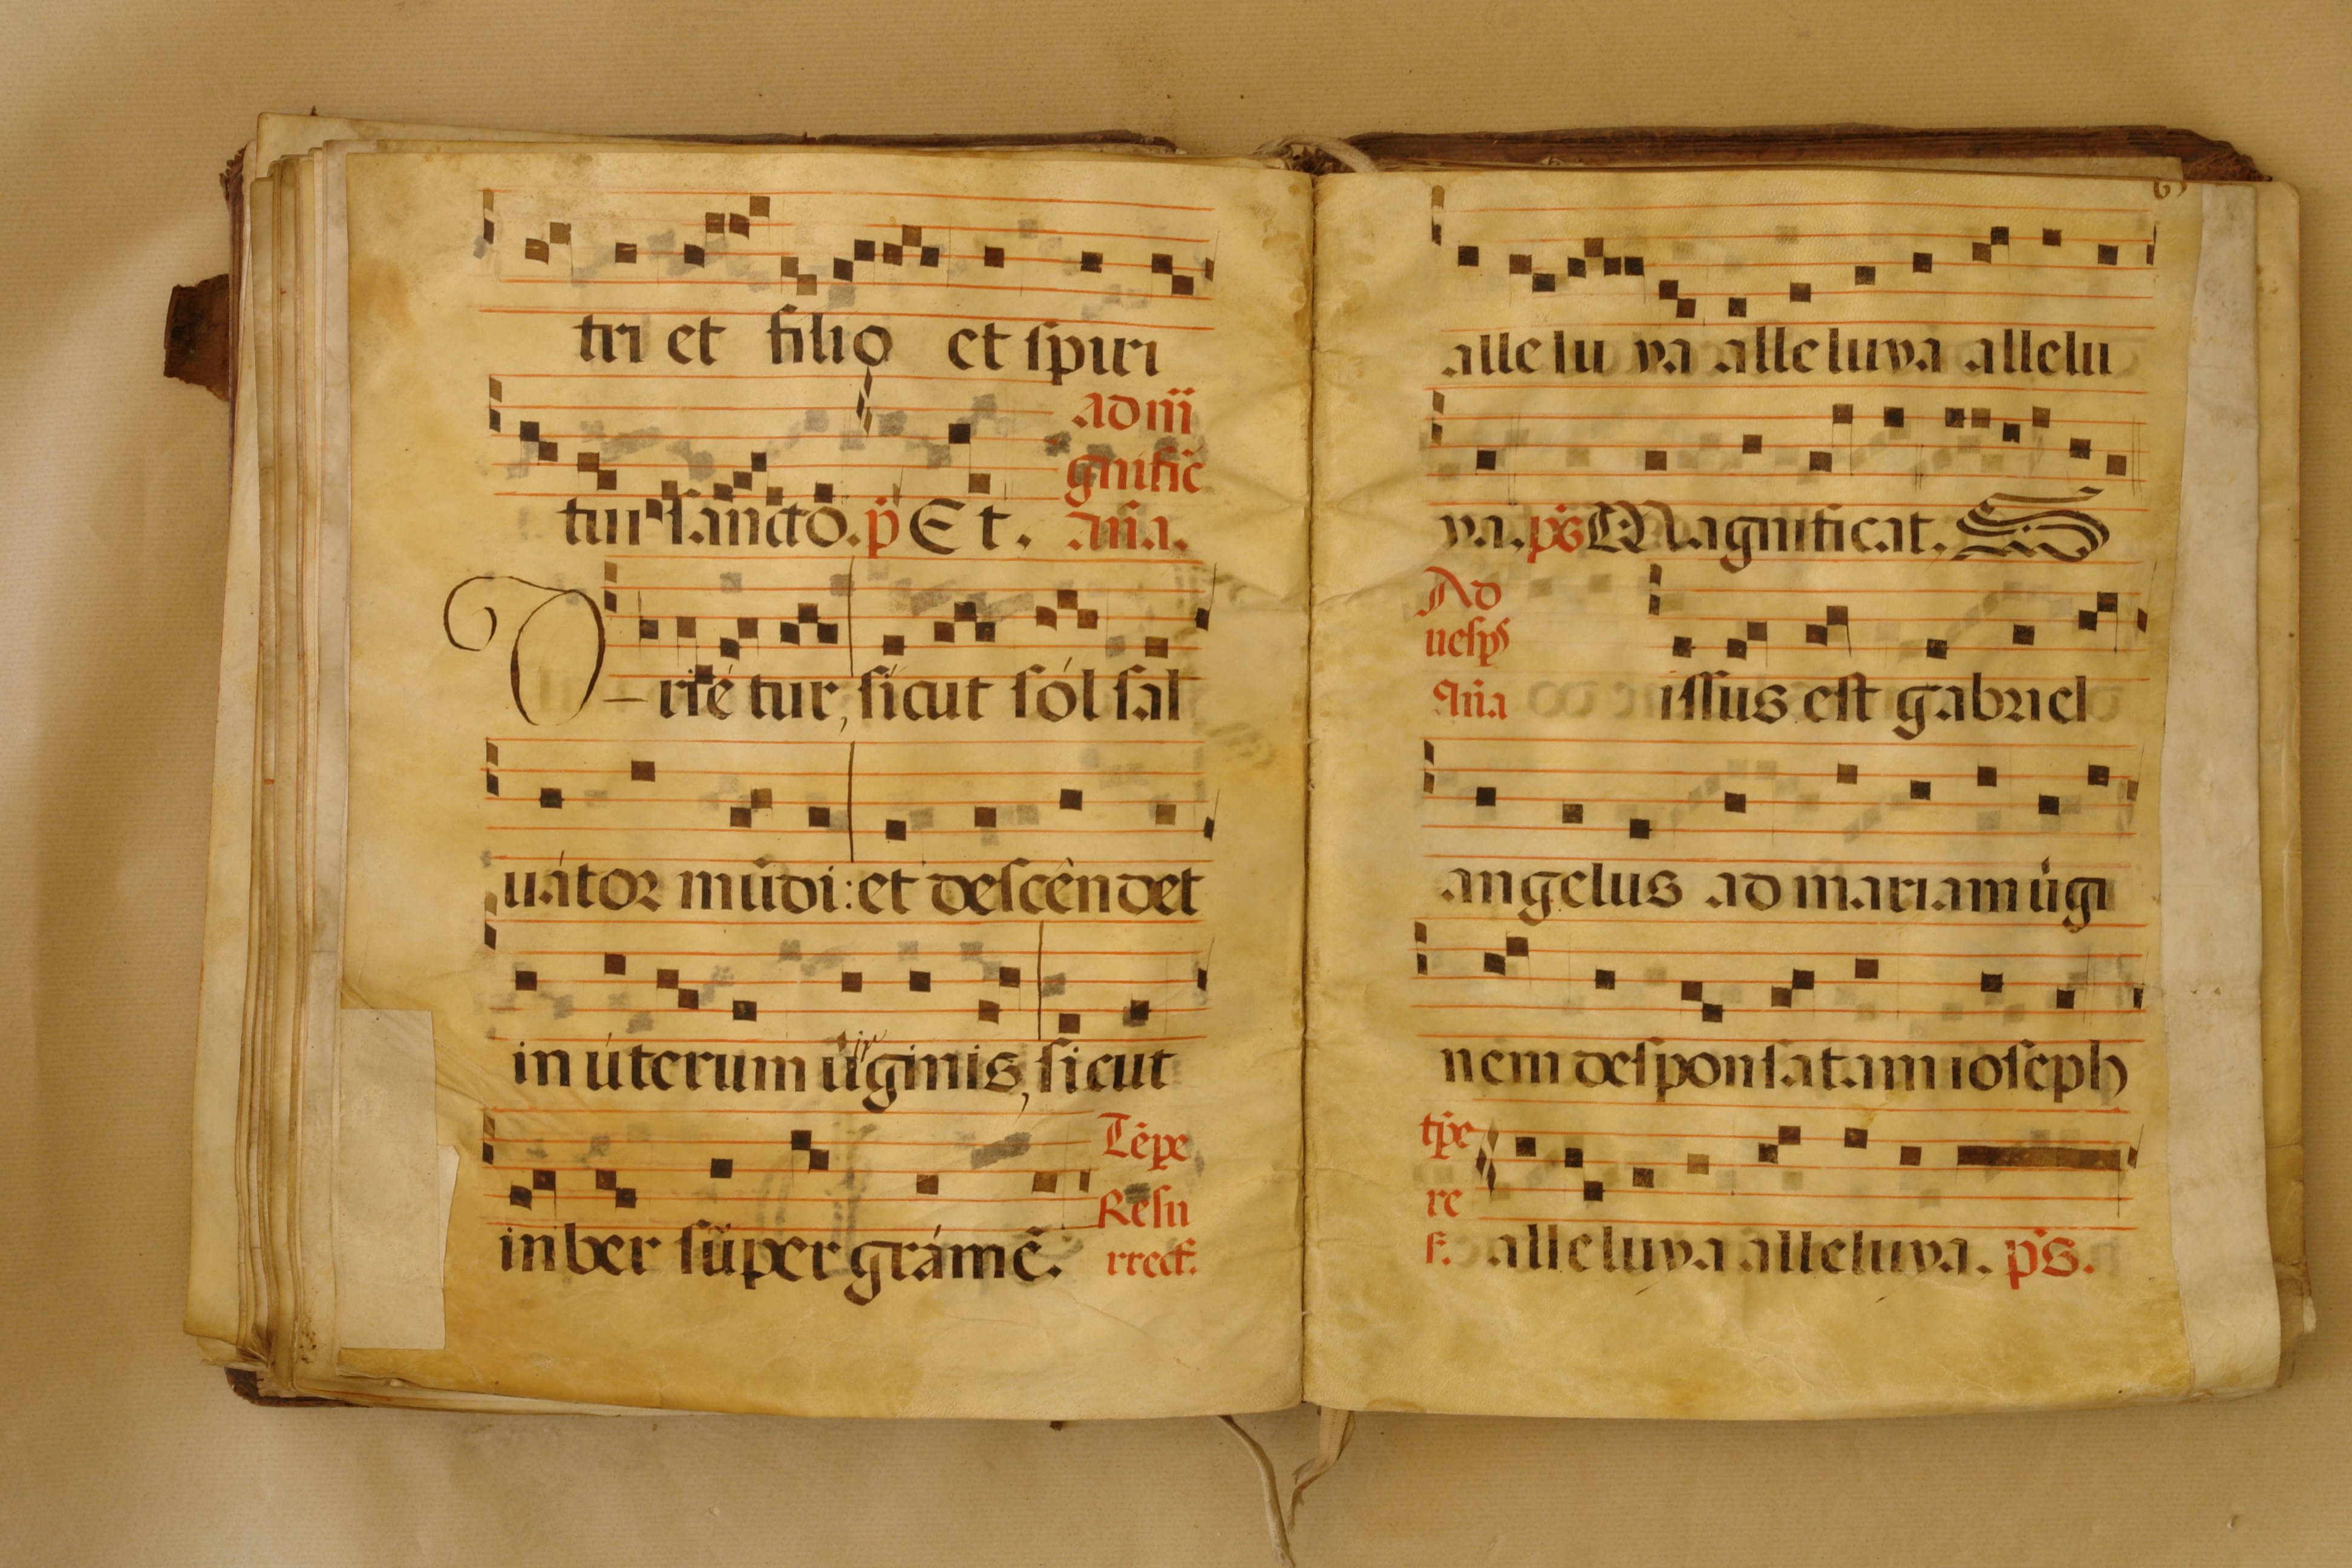 tri et filio et spiri
ad m̃
gnific̃
tui sancto. p̃ Et. añа.
Oriétur, sicut sól sal
uátor mũdi: et descêndet
in úterum ũginis, sicut
inber súper grámẽ.
Tẽpe
Resu
rrect.
allelu ya alleluya allelu
ya. p̃s Magnificat.
Ad
uesp̃
Aña issus est gabriel
angelus ad mariam ũgi
nem desponsatam ioseph
tp̃e
re
s. alleluya alleluya. p̃s.